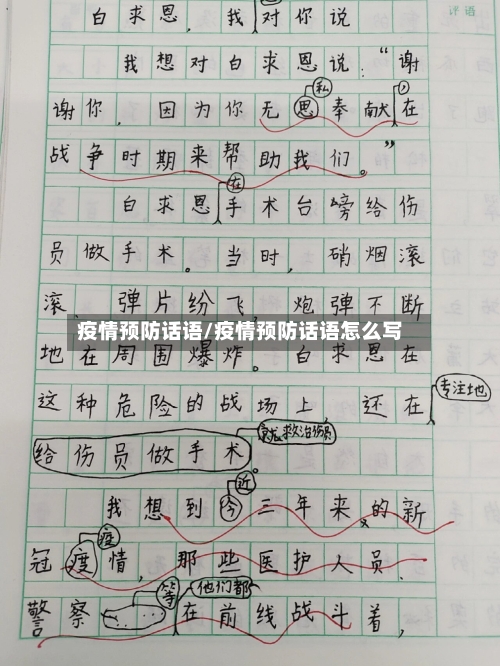 评语
白求恩，我对你说
我想对白求恩说：“谢
私
谢你，因为你无恩奉献在
战争时期来帮助我们。”
在
白求恩手术台嗙给伤
员做手术。当时，硝烟滚
滚，弹片纷飞，炮弹不断
疫情预防话语/疫情预防话语怎么写
地在周围爆炸。白求恩在
专注地
这种危险的战场上，还在
就救治伤员
给伤员做手术。
近
我想到今三年来的新
疫
冠疫情，那些医护人员、
等 他们都
警察……在前线战斗着，